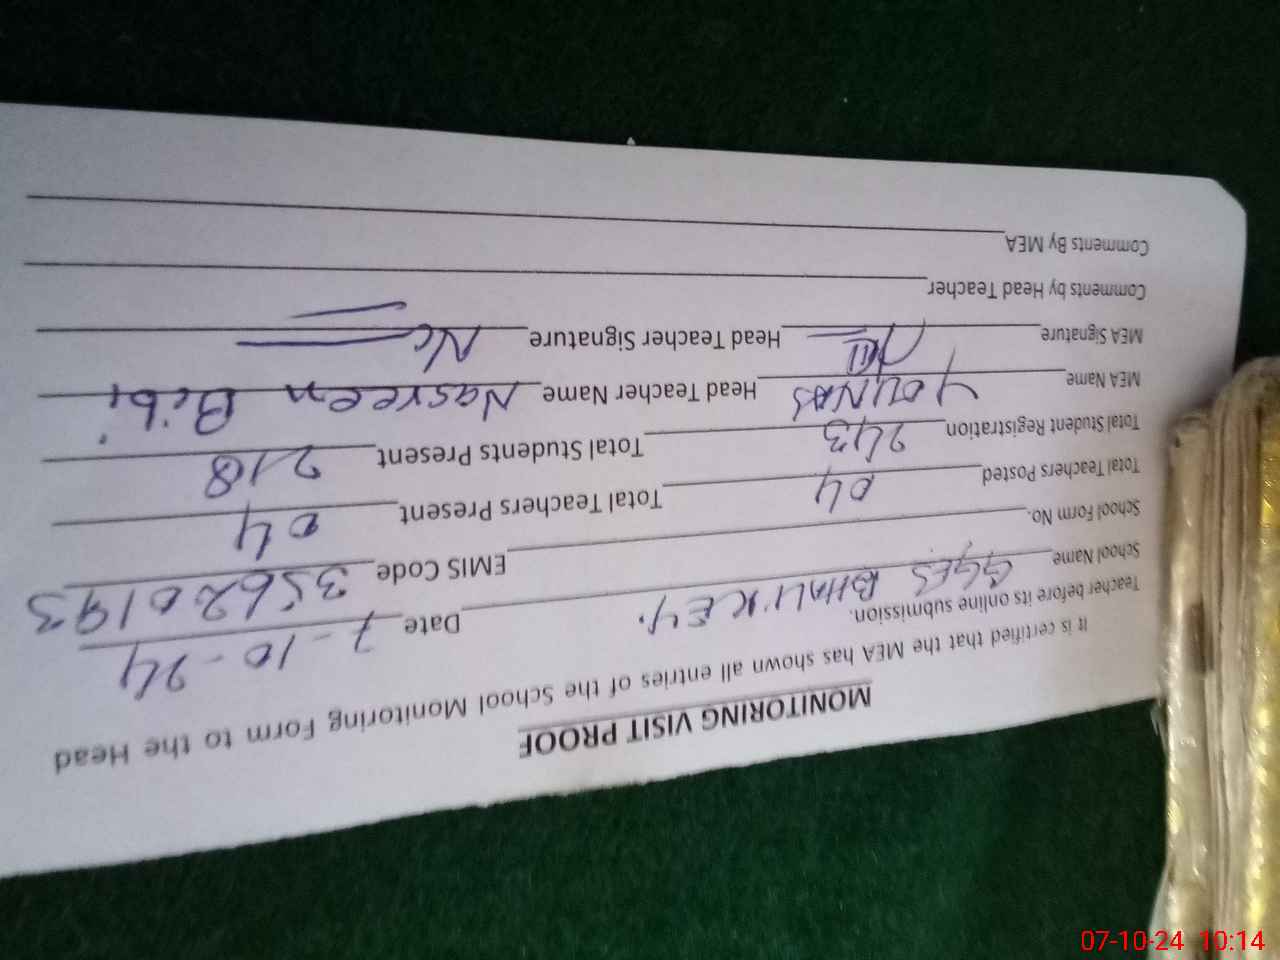 MONITORING VISIT PROOF
It is certified that the MEA has shown all entries of the School Monitoring Form to the Head
Teacher before its online submission.
School Name GGES BHALIKEY. Date 7-10-24
School Form No. EMIS Code 35620193
Total Teachers Posted 04 Total Teachers Present 04
Total Student Registration 243 Total Students Present 218
MEA Name YOUNAS Head Teacher Name Nasreen Bibi
MEA Signature Head Teacher Signature
Comments by Head Teacher
Comments By MEA
07-10-24 10:14